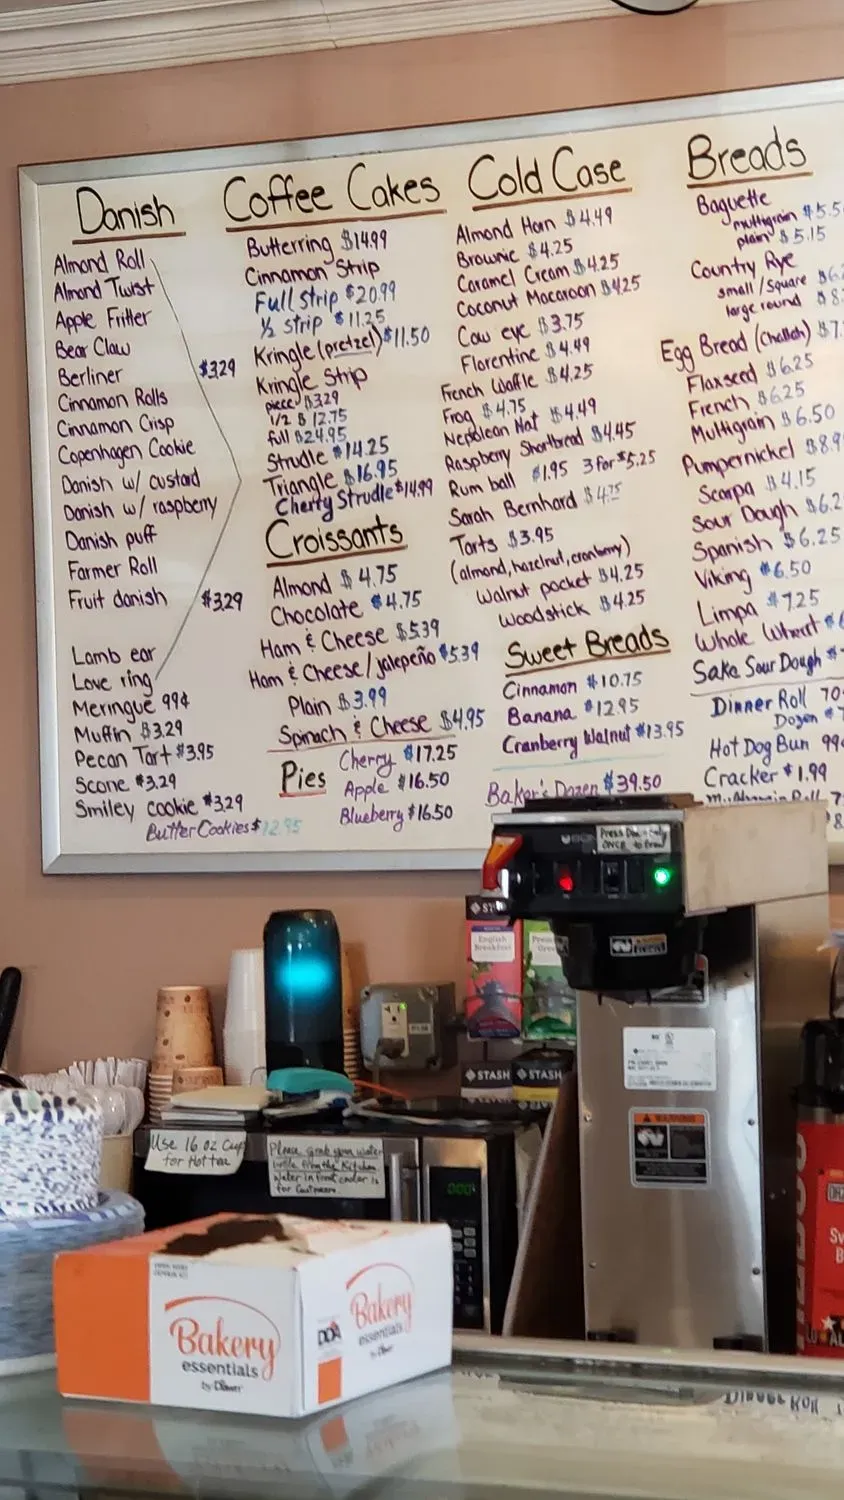 Danish
Almond Roll
Almond Twist
Apple Fritter
Bear Claw
Berliner
$3.29
Cinnamon Rolls
Cinnamon Crisp
Copenhagen Cookie
Danish w/ custard
Danish w/ raspberry
Danish puff
Farmer Roll
Fruit danish
$3.29
Lamb ear
Love ring
Meringue 99¢
Muffin $3.29
Pecan Tart $3.95
Scone $3.29
Smiley cookie $3.29
Butter Cookies $12.95
Coffee Cakes
Butterring $14.99
Cinnamon Strip
Full Strip $20.99
½ strip $11.25
Kringle (pretzel) $11.50
Kringle Strip
piece $3.29
1/2 $12.75
full $24.95
Strudle $14.25
Triangle $16.95
Cherry Strudle $14.99
Croissants
Almond $4.75
Chocolate $4.75
Ham & Cheese $5.39
Ham & Cheese/jalepeño $5.39
Plain $3.99
Spinach & Cheese $4.95
Pies
Cherry $17.25
Apple $16.50
Blueberry $16.50
Cold Case
Almond Horn $4.49
Brownie $4.25
Caramel Cream $4.25
Coconut Macaroon $4.25
Cow eye $3.75
Florentine $4.49
French Waffle $4.25
Frog $4.75
Nepolean Hat $4.49
Raspberry Shortbread $4.45
Rum ball $1.95 3 for $5.25
Sarah Bernhard $4.75
Tarts $3.95
(almond, hazelnut, cranberry)
Walnut pocket $4.25
Woodstick $4.25
Sweet Breads
Cinnamon $10.75
Banana $12.95
Cranberry Walnut $13.95
Baker's Dozen $39.50
Breads
Baguette
multigrain $5.5
plain $5.15
Country Rye
small/square $6.
large round $8.
Egg Bread (challah) $7.
Flaxseed $6.25
French $6.25
Multigrain $6.50
Pumpernickel $8.9
Scarpa $4.15
Sour Dough $6.2
Spanish $6.25
Viking $6.50
Limpa $7.25
Whole Wheat $
Saka Sour Dough $
Dinner Roll 70
Dozen $
Hot Dog Bun 99
Cracker $1.99
Multigrain Roll
Press
ONCE to Brew
English
Breakfast
STASH
STASH
WARNING
Use 16 oz Cup
for Hot tea
Please grab your water
bottle from the Kitchen
Water in front cooler is
for Customers.
Bakery
essentials
by Dawn
Bakery
essentials
by Dawn
Dinner Roll